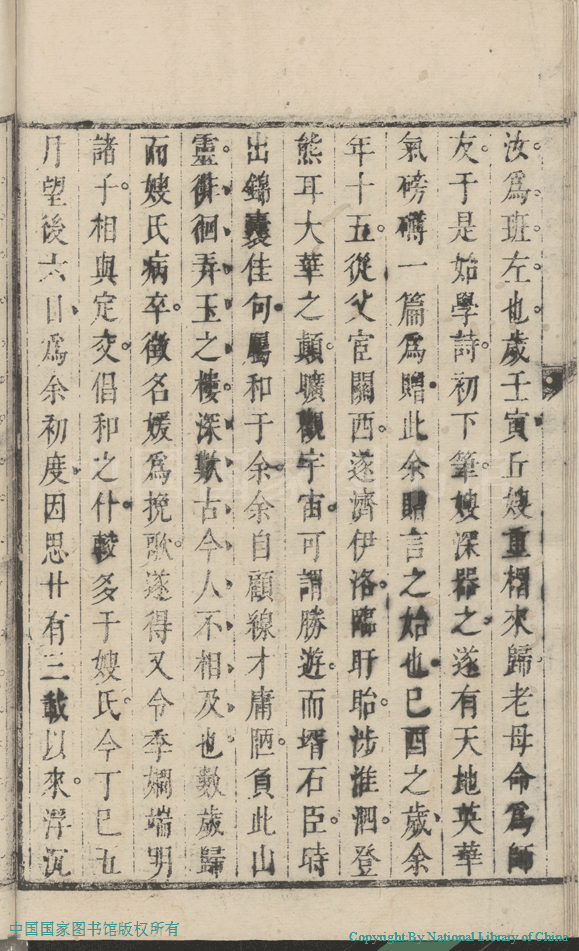 汝爲班左也。歲壬寅丘嫂重榴來歸。老母命爲師
友。于是始學詩。初下筆嫂深器之。遂有天地英華
氣磅礴一篇爲贈。此余贈言之始也。己酉之歲、余
年十五。從父宦關西。遂濟伊洛。臨盱眙。涉淮泗。登
熊耳大華之顛。曠觀宇宙。可謂勝遊。而壻石臣。時
出錦囊佳句。屬和于余。余自顧線才庸陋。負此山
靈。徘徊弄玉之樓。深歎古今人不相及也。數歲歸
而嫂氏病卒。徵名媛爲挽歌。遂得又令季嫻端明
諸子。相與定交。倡和之什。較多于嫂氏。今丁巳五
月望後六日、爲余初度、因思廿有三載以來。浮沉
中国国家图书馆版权所有
Copyright By National Library of China